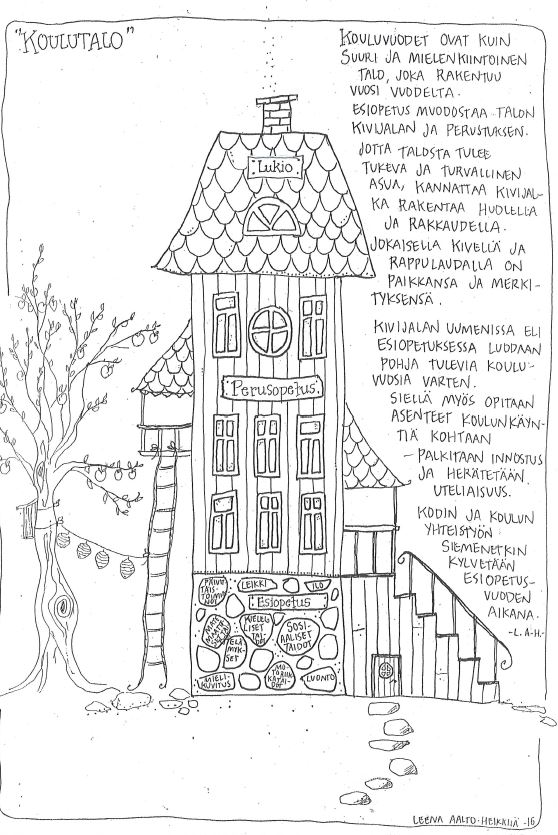 "KOULUTALO"
KOULUVUODET OVAT KUIN
SUURI JA MIELENKIINTOINEN
TALO, JOKA RAKENTUU
VUOSI VUODELTA.
ESIOPETUS MUODOSTAA TALON
KIVIJALAN JA PERUSTUKSEN.
JOTTA TALOSTA TULEE
TUKEVA JA TURVALLINEN
ASUA, KANNATTAA KIVIJAL-
KA RAKENTAA HUOLELLA
JA RAKKAUDELLA.
JOKAISELLA KIVELLÄ JA
RAPPULAUDALLA ON
PAIKKANSA JA MERKI-
TYKSENSÄ.
KIVIJALAN UUMENISSA ELI
ESIOPETUKSESSA LUODAAN
POHJA TULEVIA KOULU-
VUOSIA VARTEN.
SIELLÄ MYÖS OPITAAN
ASENTEET KOULUNKÄYN-
TIÄ KOHTAAN
- PALKITAAN INNOSTUS
JA HERÄTETÄÄN
UTELIAISUUS.
KODIN JA KOULUN
YHTEISTYÖN
SIEMENETKIN
KYLVETÄÄN
ESIOPETUS-
VUODEN
AIKANA.
-L.A-H.-
Lukio
Perusopetus
LEIKKI
ILO
Esiopetus
SOSI-
AALISET
TAIDOT
ELÄ
MYK-
SET
MIELI-
KUVITUS
LUONTO
LEENA AALTO-HEIKKILÄ -16